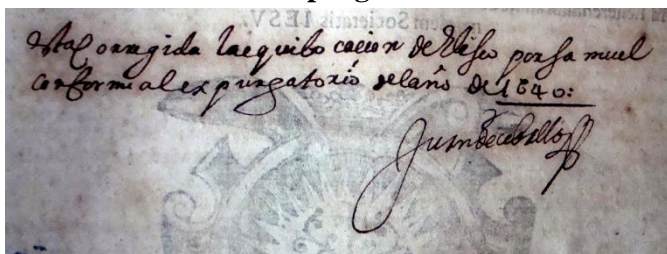 Societatis IESV.
Esta corregida la equibocacion de Eliseo por Samuel
conforme al expurgatorio del año de 1640:
Juan de ceballos